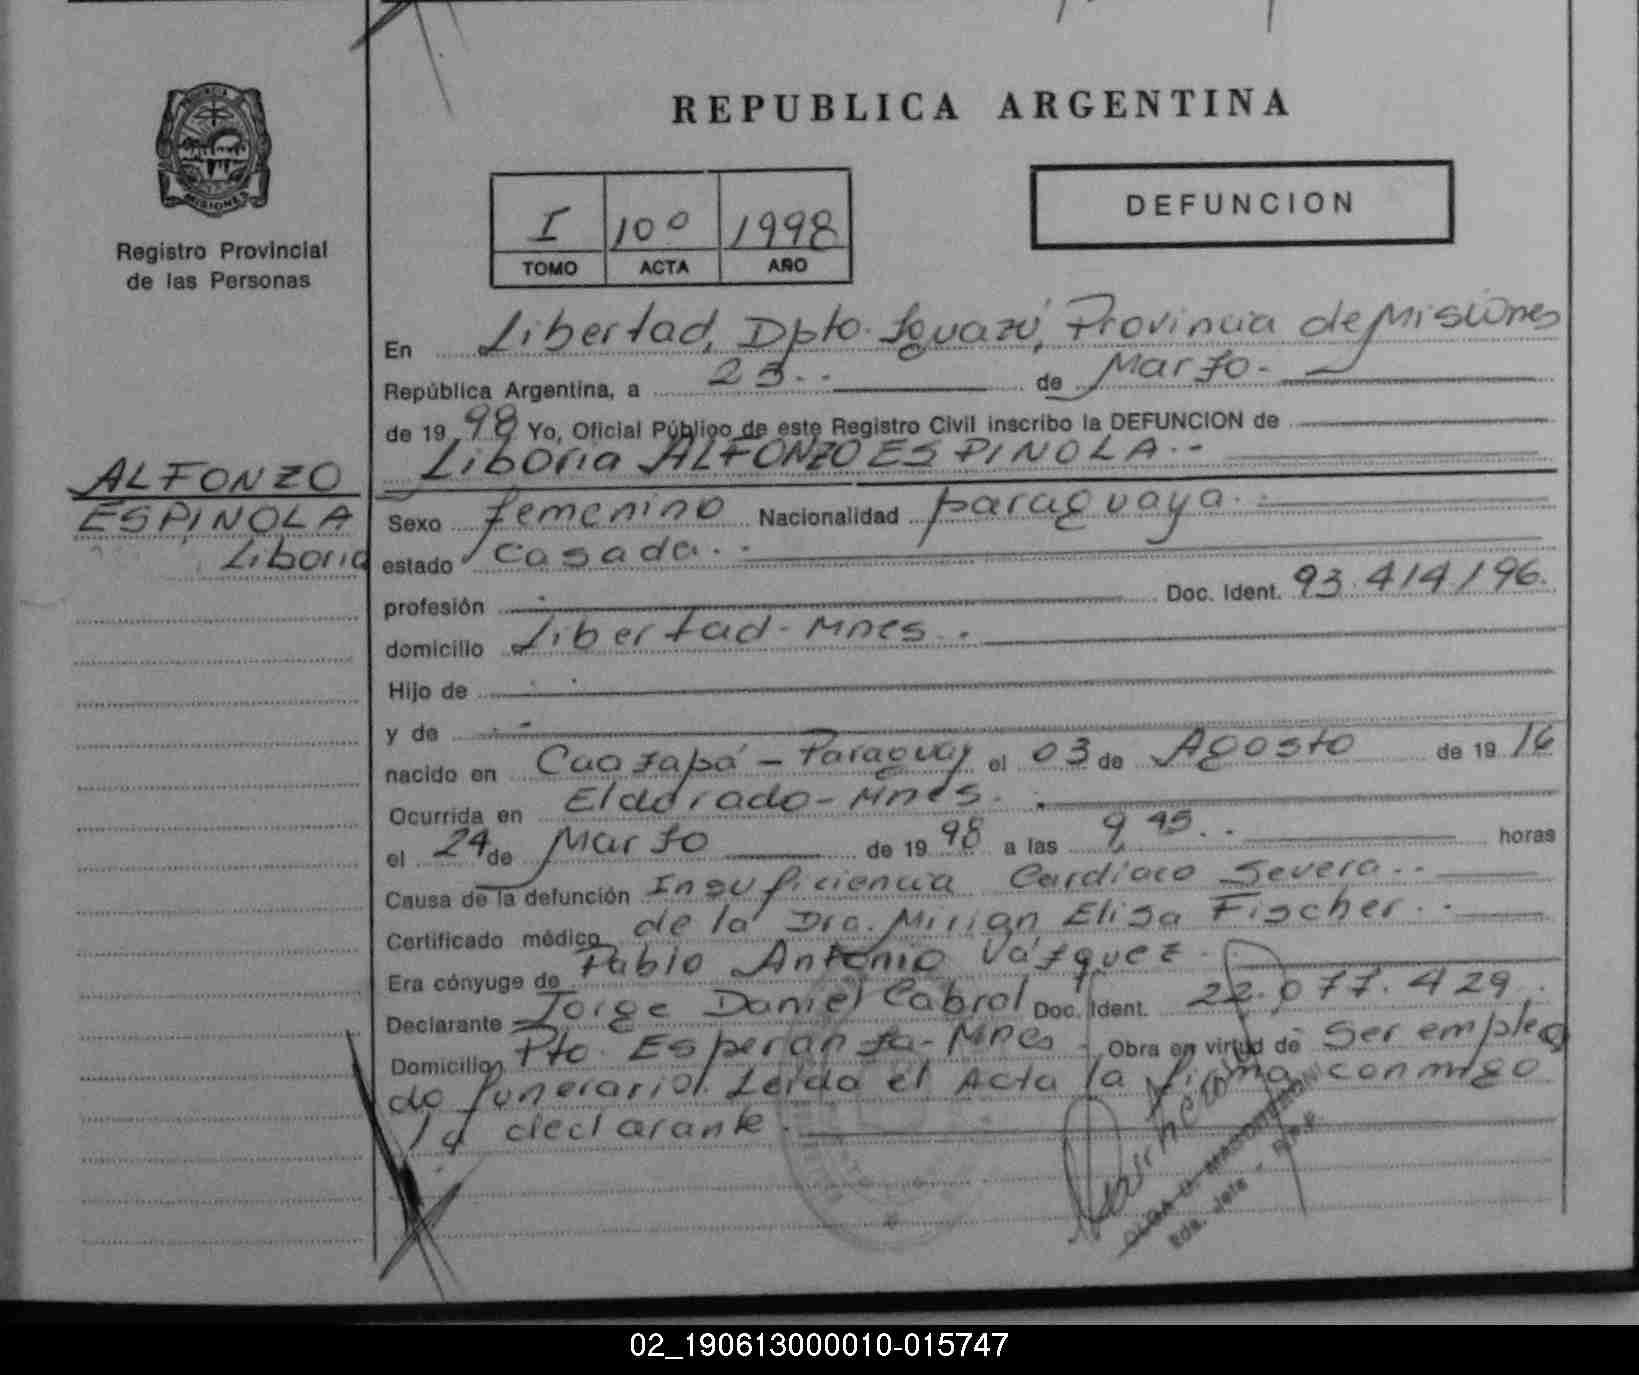 REPUBLICA ARGENTINA
PROVINCIA
MISIONES
Registro Provincial
de las Personas
I 10º 1998
TOMO ACTA AÑO
DEFUNCION
En Libertad, Dpto. Iguazú, Provincia de Misiones
República Argentina, a 25.- de Marzo.-
de 19 98 Yo, Oficial Público de este Registro Civil inscribo la DEFUNCION de
Liboria ALFONZO ESPINOLA.-
ALFONZO
ESPINOLA
Liboria
Sexo femenino Nacionalidad paraguaya.-
estado casada.-
profesión Doc. Ident. 93.414.196.
domicilio Libertad-Mnes.-
Hijo de
y de
nacido en Caazapá-Paraguay el 03 de Agosto de 19 16
Ocurrida en Eldorado-Mnes.
el 24 de Marzo de 19 98 a las 9,45.- horas
Causa de la defunción Insuficiencia Cardiaca Severa.-
Certificado médico de la Dra. Mirian Elisa Fischer.-
Era cónyuge de Pablo Antonio Vázquez.
Declarante Jorge Daniel Cabral Doc. Ident. 22.077.429.
Domicilio Pto. Esperanza-Mnes Obra en virtud de ser emplea
do funerario. Leída el Acta la firma conmigo
la declarante.
Eda. Jefe
02_190613000010-015747